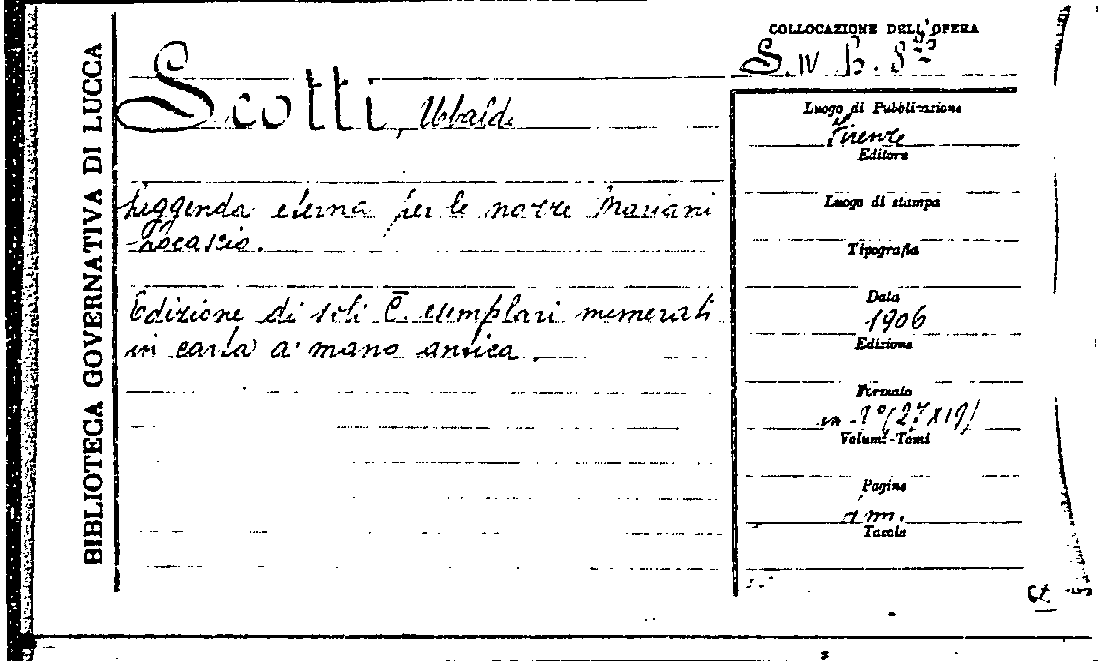 BIBLIOTECA GOVERNATIVA DI LUCCA
COLLOCAZIONE DELL'OPERA
S. IV
Scotti, Ubaldo
Leggenda eterna per le nozze Mariani
Edizione di soli C. esemplari numerati
in carta a mano antica.
Luogo di Pubblicazione
Firenze
Editore
Luogo di stampa
Tipografia
Data
1906
Edizione
Formato
(27x19)
Volumi-Tomi
Pagine
Tavole